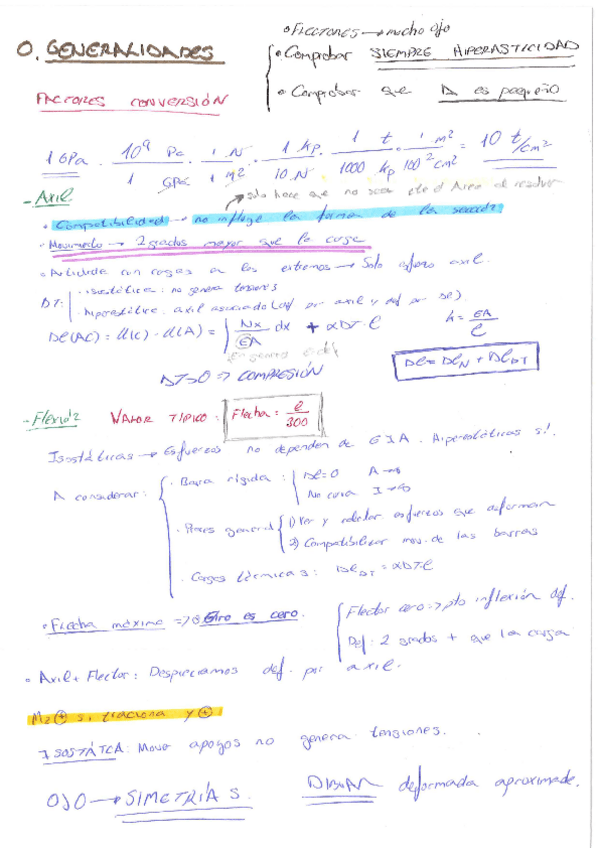 O. GENERALIDADES
• FLECTORES → mucho ojo
• Comprobar SIEMPRE HIPERASTICIDAD
• Comprobar que Δ es pequeño
FACTORES CONVERSIÓN
1 GPa · 10⁹ Pa / 1 GPa · 1 N / 1 m² · 1 kp / 10 N · 1 t / 1000 kp · 1 m² / 100² cm² = 10 t/cm²
- AXIL
solo hace que no sea cte el Area al resolver
• Compatibilidad → no influye la forma de la sección
• Movimiento → 2 grados mayor que la carga
• Articulada con cargas en los extremos → Solo esfuerzo axil.
ΔT: isostática: no genera tensiones
hiperestática: axil asociado (def por axil y def por ΔT)
Δl(AC) = u(C) - u(A) = ∫ Nx/EA dx + αΔT·l
k = EA/l
Δl = ΔlN + ΔlΔT
ΔT>0 => COMPRESIÓN
- Flexión VALOR TÍPICO: Flecha = l/300
Isostáticas → Esfuerzos no dependen de E I A. Hiperestáticas sí.
A considerar:
· Barra rígida: Δl=0 A→∞
No curva I→∞
1) Ver y calcular esfuerzos que deforman
2) Compatibilizar mov. de las barras
· Cargas térmicas: ΔlΔT = αΔT·l
• Flecha máxima => Giro es cero.
Flector cero => pto inflexión def.
Def. 2 grados + que la carga
• Axil + Flector: Despreciamos def. por axil.
Mz ⊕ si tracciona y ⊕
ISOSTÁTCA: Mover apoyos no genera tensiones.
OJO → SIMETRÍAS. DIBUJAR deformada aproximada.